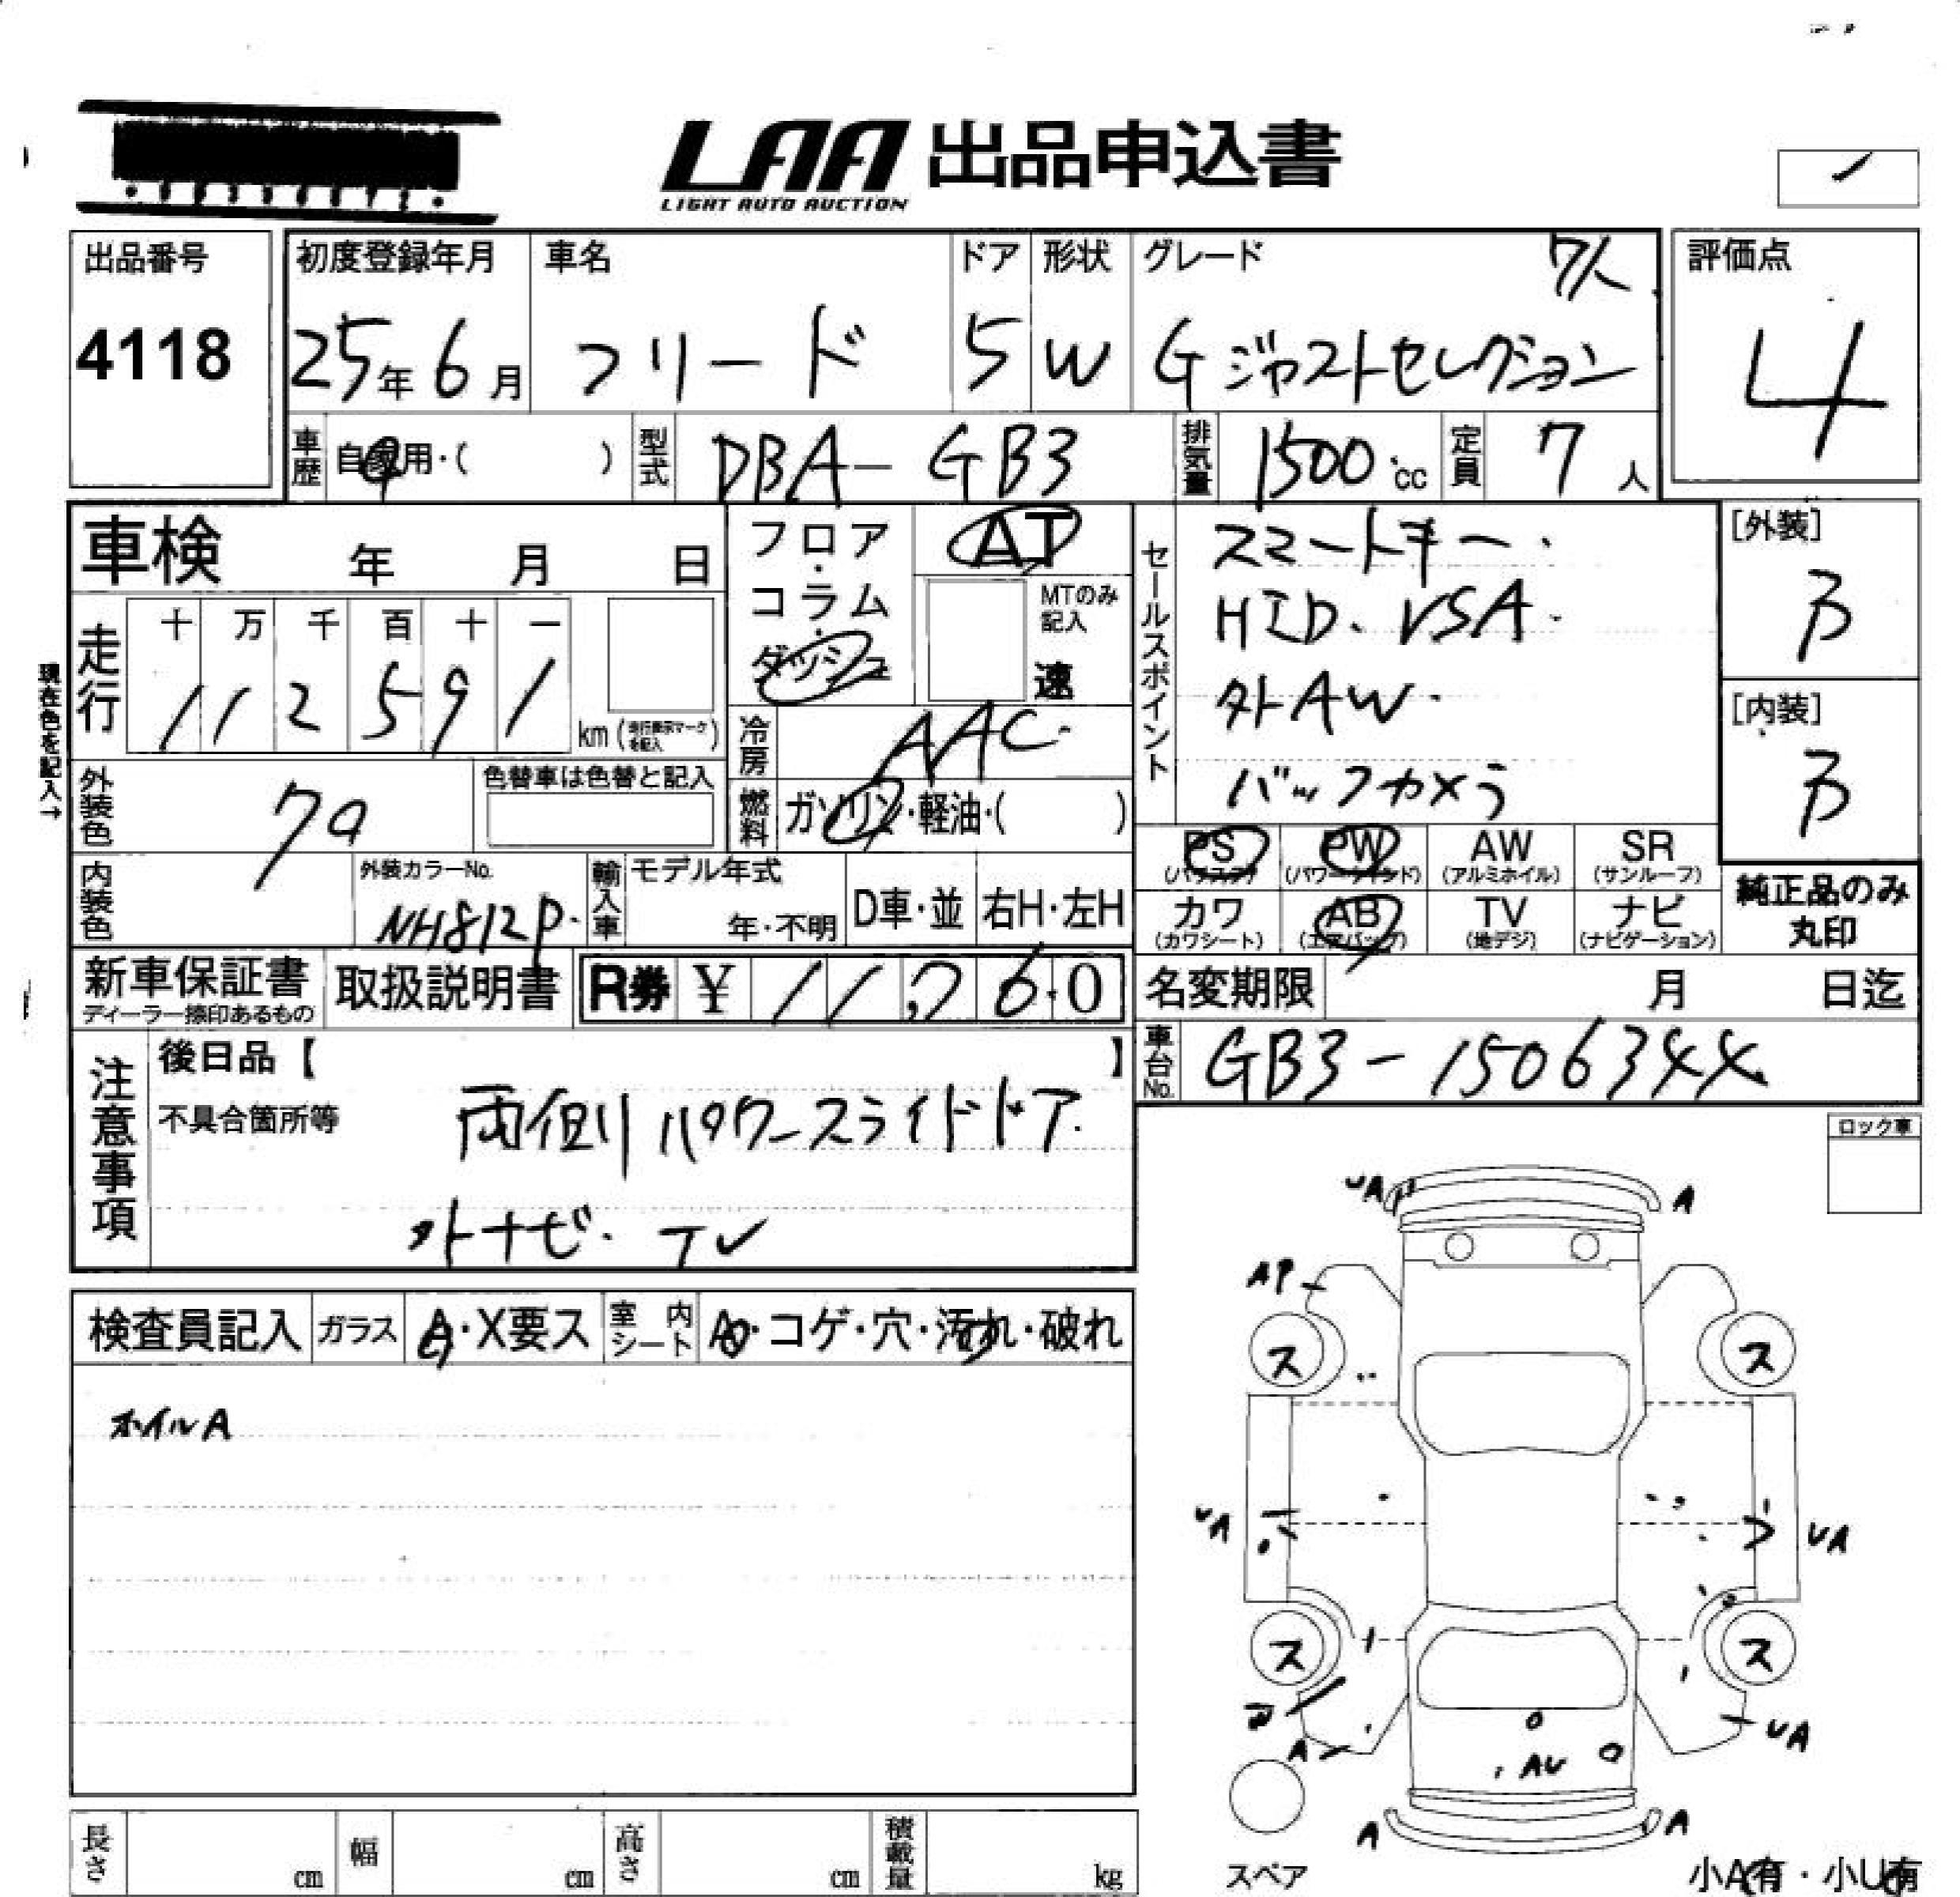 LAA 出品申込書
LIGHT AUTO AUCTION
出品番号
4118
初度登録年月
25年6月
車名
フリード
ドア
5
形状
W
グレード
7人
G ジャストセレクション
評価点
4
車歴
自家用・( )
型式
DBA-GB3
排気量
1500cc
定員
7人
車検 年 月 日
フロア・コラム・ダッシュ
AT
MTのみ記入
速
セールスポイント
スマートキー.
HID. VSA.
外AW.
バックカメラ
[外装]
B
[内装]
B
現在色を記入→
走行
十 万 千 百 十 一
1 1 2 5 9 1
km (走行表示マークを記入)
冷房
AAC.
外装色
色替車は色替と記入
燃料
ガソリン・軽油・( )
PS (パワステ)
PW (パワーウインド)
AW (アルミホイル)
SR (サンルーフ)
カワ (カワシート)
AB (エアバッグ)
TV (地デジ)
ナビ (ナビゲーション)
純正品のみ丸印
内装色
外装カラーNo.
NH812P.
輸入車
モデル年式
年・不明
D車・並
右H・左H
新車保証書
ディーラー捺印あるもの
取扱説明書
R券 ¥ 11,260
名変期限 月 日迄
車台No.
GB3-1506344
注意事項
後日品【 】
不具合箇所等
両側パワースライドドア.
外ナビ. TV
ロック車
検査員記入
ガラス
A・X要ス
室内シート
A・コゲ・穴・汚れ・破れ
ホイルA
UA
A
AP
ス
ス
UA
UA
ス
ス
A
UA
AU
A
A
スペア
小A有・小U有
長さ cm
幅 cm
高さ cm
積載量 kg